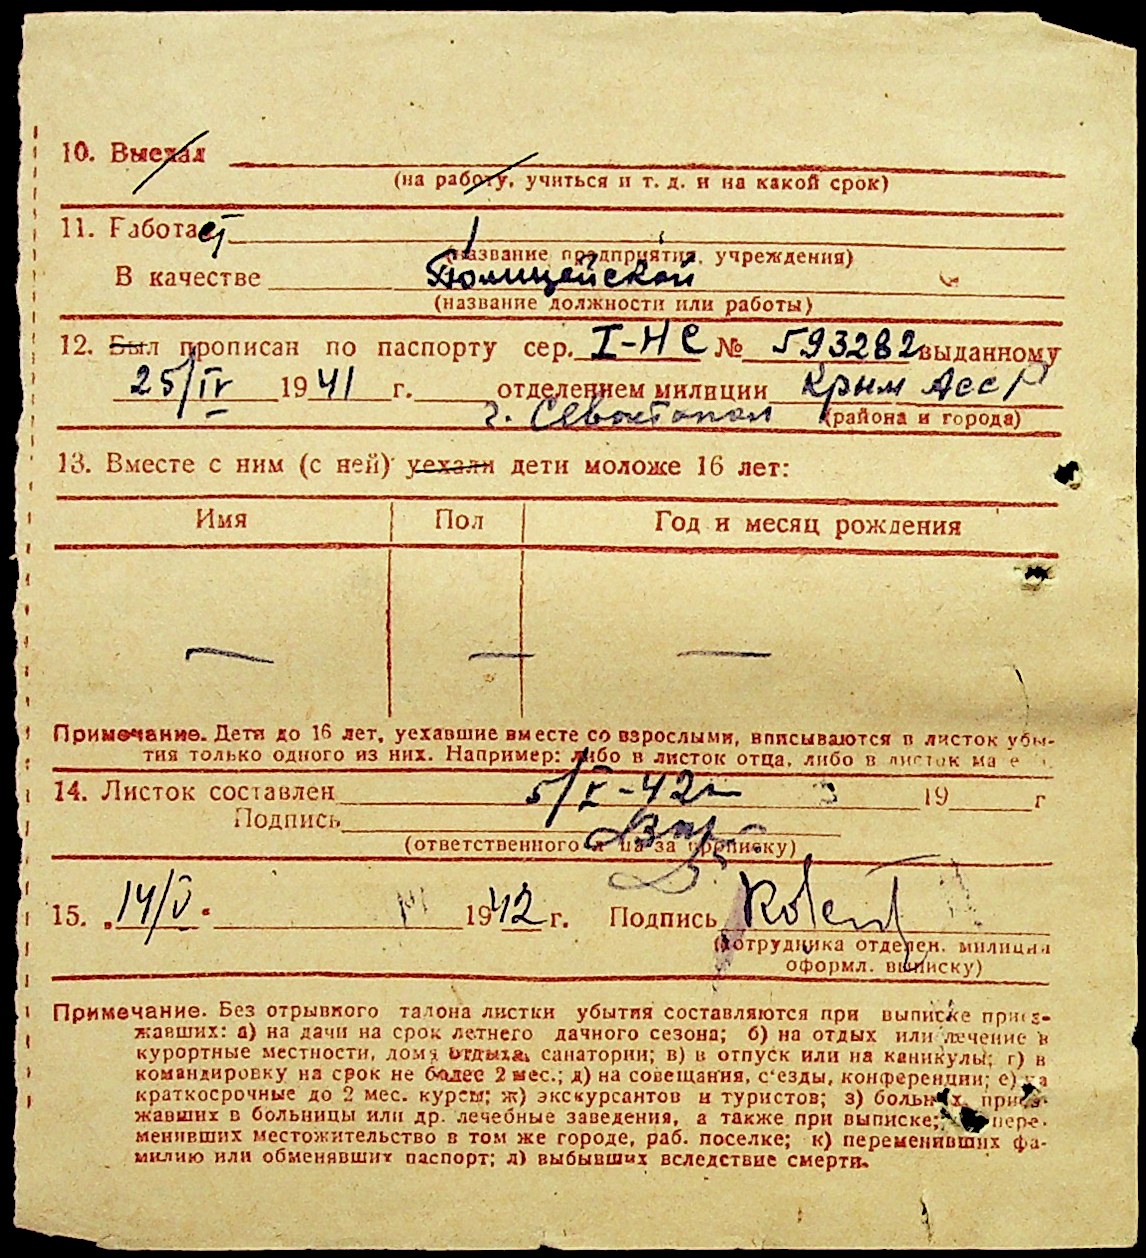 10. Выехал
(на работу, учиться и т. д. и на какой срок)
11. Работает
(название предприятия, учреждения)
В качестве Полицейской
(название должности или работы)
12. Был прописан по паспорту сер. I-НС № 593282 выданному
25/IV 1941 г. отделением милиции Крым АССР
г. Севастопол (района и города)
13. Вместе с ним (с ней) уехали дети моложе 16 лет:
Имя Пол Год и месяц рождения
— — —
Примечание. Дети до 16 лет, уехавшие вместе со взрослыми, вписываются в листок убы-
тия только одного из них. Например: либо в листок отца, либо в листок
14. Листок составлен 5/V-42г 19 г
Подпись
(ответственного за прописку)
15. „14/V" 1942 г. Подпись
(сотрудника отделен. милиции
оформл. выписку)
Примечание. Без отрывного талона листки убытия составляются при выписке приез-
жавших: а) на дачи на срок летнего дачного сезона; б) на отдых или лечение в
курортные местности, дома отдыха, санатории; в) в отпуск или на каникулы; г) в
командировку на срок не более 2 мес.; д) на совещания, с'езды, конференции; е) на
краткосрочные до 2 мес. курсы; ж) экскурсантов и туристов; з) больных, приез-
жавших в больницы или др. лечебные заведения, а также при выписке; пере-
менивших местожительство в том же городе, раб. поселке; к) переменивших фа-
милию или обменявших паспорт; л) выбывших вследствие смерти.